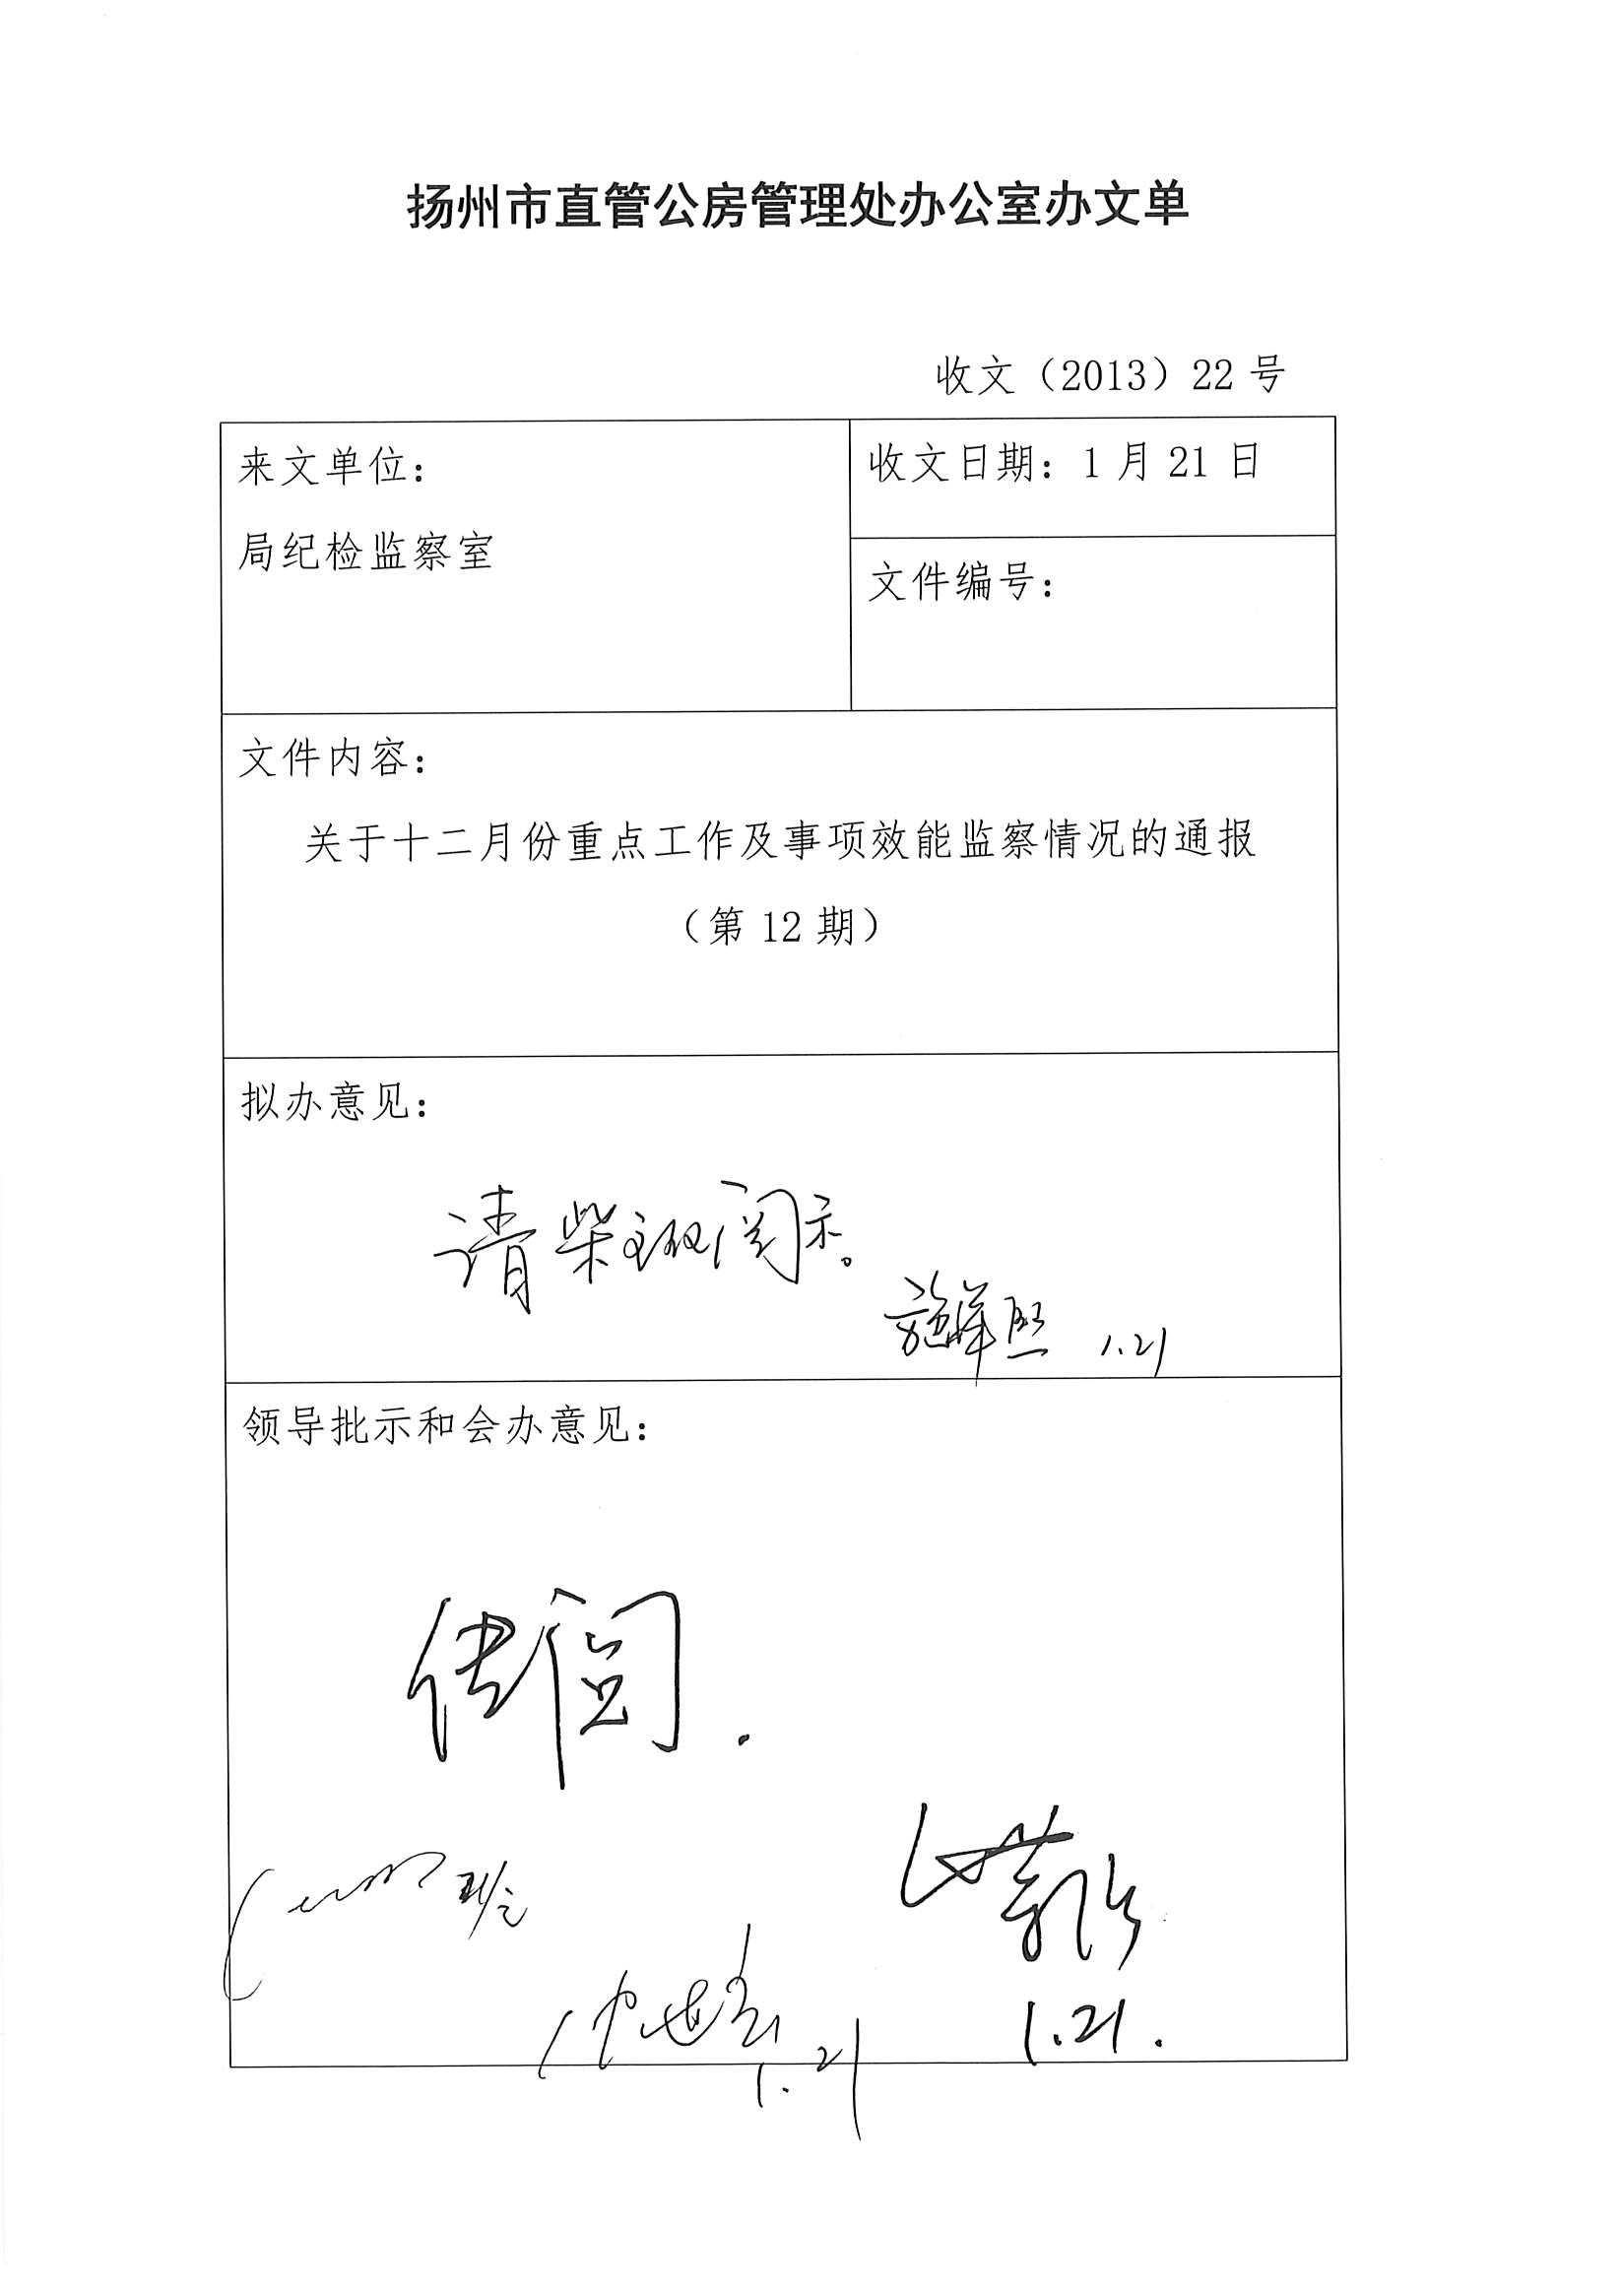 扬州市直管公房管理处办公室办文单
收文（2013）22 号
来文单位：
局纪检监察室
收文日期：1 月 21 日
文件编号：
文件内容：
关于十二月份重点工作及事项效能监察情况的通报
（第 12 期）
拟办意见：
请柴主任阅示。
1.21
领导批示和会办意见：
传阅.
1.21.
1.21